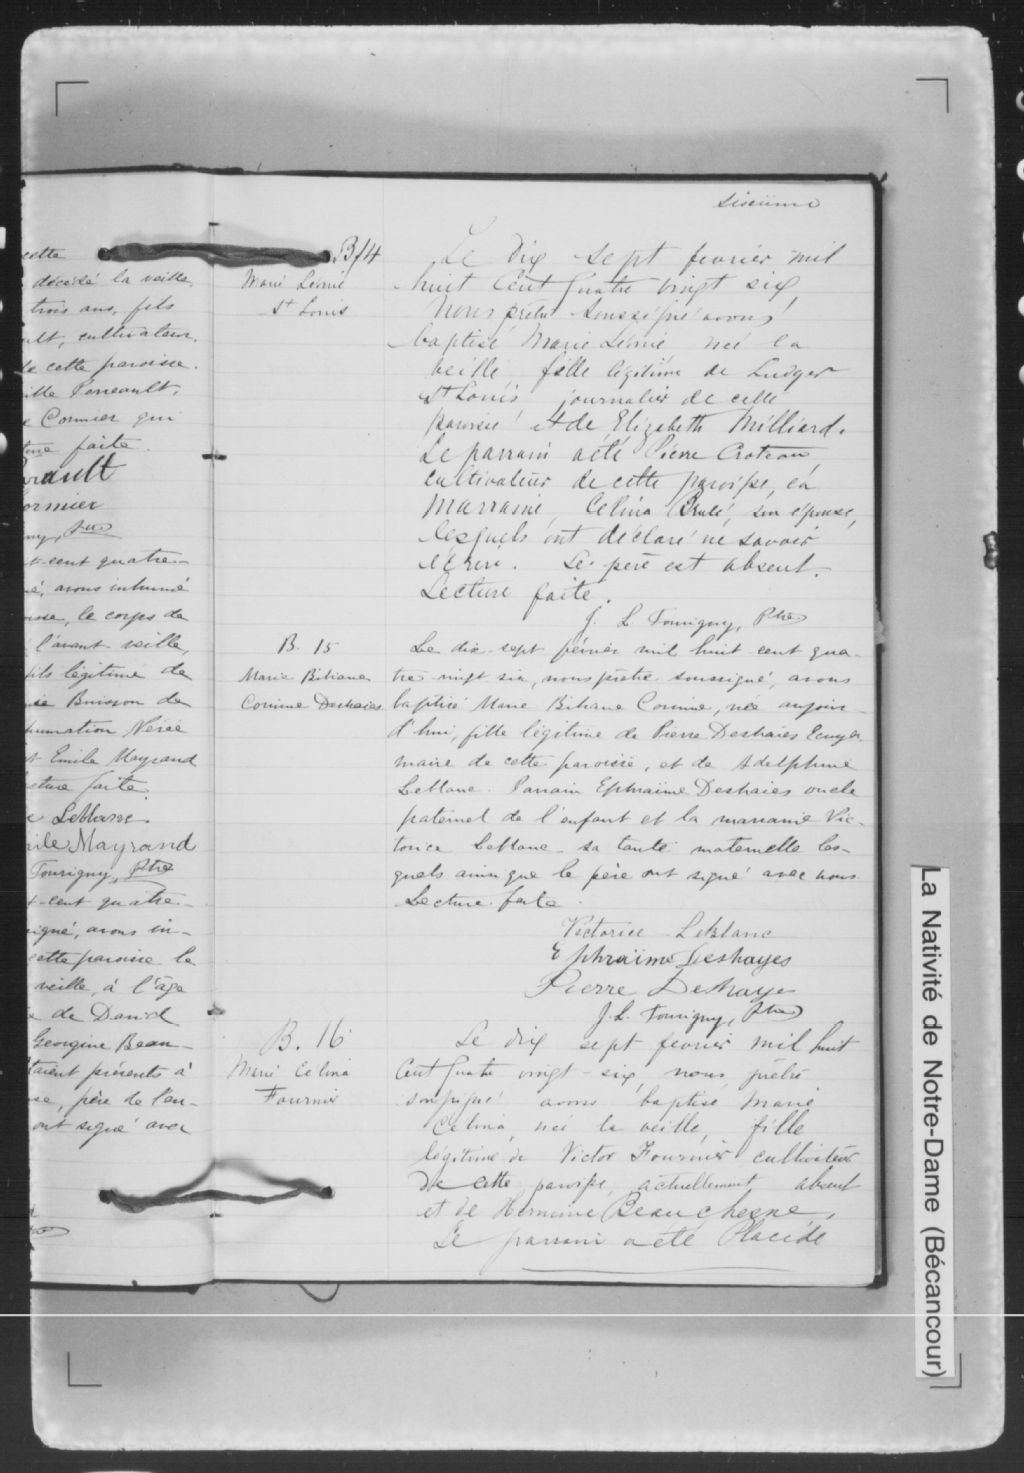 cette
décédé la veille
trois ans, fils
ult, cultivateur,
de cette paroisse.
Perreault,
Cormier qui
faite.
rault
ormier
ny, Ptre
cent quatre-
avons inhumé
le corps de
l'avant-veille,
fils légitime de
Buisson de
humation Nérée
Emile Mayrand
cture faite.
LeBlanc
ile Mayrand
Tourigny, Ptre
cent quatre-
igné, avons in-
cette paroisse le
veille, à l'âge
de David
Georgine Beau-
taient présents à
père de l'en-
ont signé avec
Sixième
B14
Marie Léonie
St Louis
Le dix sept fevrier mil
huit Cent quatre vingt six,
Nous prêtre soussigné avons
baptisé Marie Léonie née la
veille fille légitime de Ludger
St Louis journalier de cette
paroisse et de Elizabeth Milliard.
Le parrain a été Pierre Croteau,
cultivateur de cette paroisse, la
Marraine, Celina Brulé, son épouse,
lesquels ont déclaré ne savoir
écrire. Le père est absent.
Lecture faite.
J. L. Tourigny, Ptre
B. 15
Marie Bibiane
Corinne Deshaies
Le dix-sept février mil huit cent qua-
tre vingt six, nous prêtre soussigné, avons
baptisé Marie Bibiane Corinne, née aujour-
d'hui, fille légitime de Pierre Deshaies Ecuyer
maire de cette paroisse, et de Adelphine
Leblanc. Parrain Ephraïme Deshaies oncle
paternel de l'enfant et la marraine Vic-
torice Leblanc sa tante maternelle les-
quels ainsi que le père ont signé avec nous.
Lecture faite.
Victorice LeBlanc
Ephraïme Deshayes
Pierre Deshayes
J. L. Tourigny, Ptre
B. 16
Marie Celina
Fournier
Le dix sept fevrier mil huit
Cent quatre vingt-six, nous prêtre
soussigné avons baptisé Marie
Celina, née la veille, fille
légitime de Victor Fournier cultivateur
de cette paroisse, actuellement absent
et de Hermine Beauchesne,
Le parrain a été Placide
La Nativité de Notre-Dame (Bécancour)